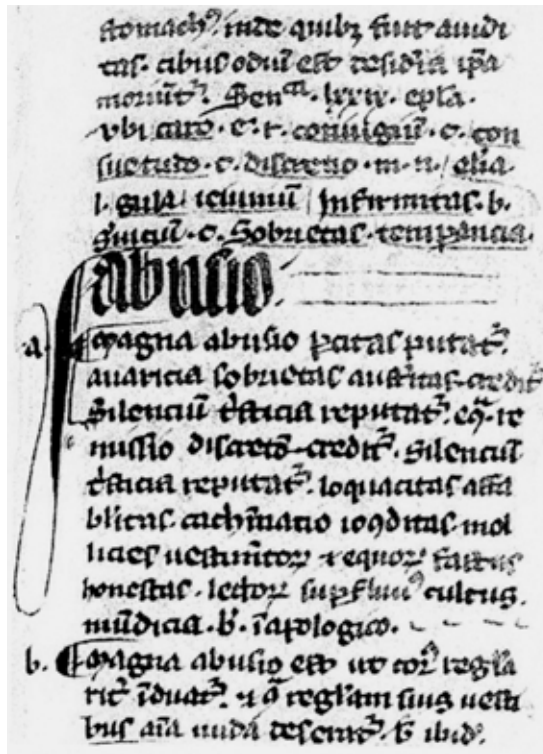 stomachꝰ. inde quibꝫ fuit auidi
tas. cibus odiū est desidͥia ip̄a
moriūtᷣ. Senᶜᵃ. lxxix. ep̄la.
vbi caro. e. r. conuigiū. c. con
suetudo. c. discretio. m. n. elia.
l. gula ieiuniū Infirmitas. b.
c. Sobrietas. tempancia.
abusio.
a. Magna abusio ꝑcitas putatᷣ.
auaricia sobrietas aust̾itas. creditᷣ
Silenciū t̾sticia reputatᷣ. eqᷓ. re
missio discreto. creditᷣ. Silenciū
t̾sticia reputatᷣ. loquacitas affa
bl̾itas. cachīnatio ioꝯditas. mol
licies uestim̄toꝝ ⁊ equoꝝ fastus
honestas. lectoꝝ suꝑfluuꝰ cultus.
mūdicia. b᷑. ī apologico.
b. Magna abusio est ut corᷣ regl̾a
ritᷣ īduatᷣ. ⁊ qͣ regl̾am suis uesti
bus aīa nuda deseratᷣ. b᷑ ibid̾.